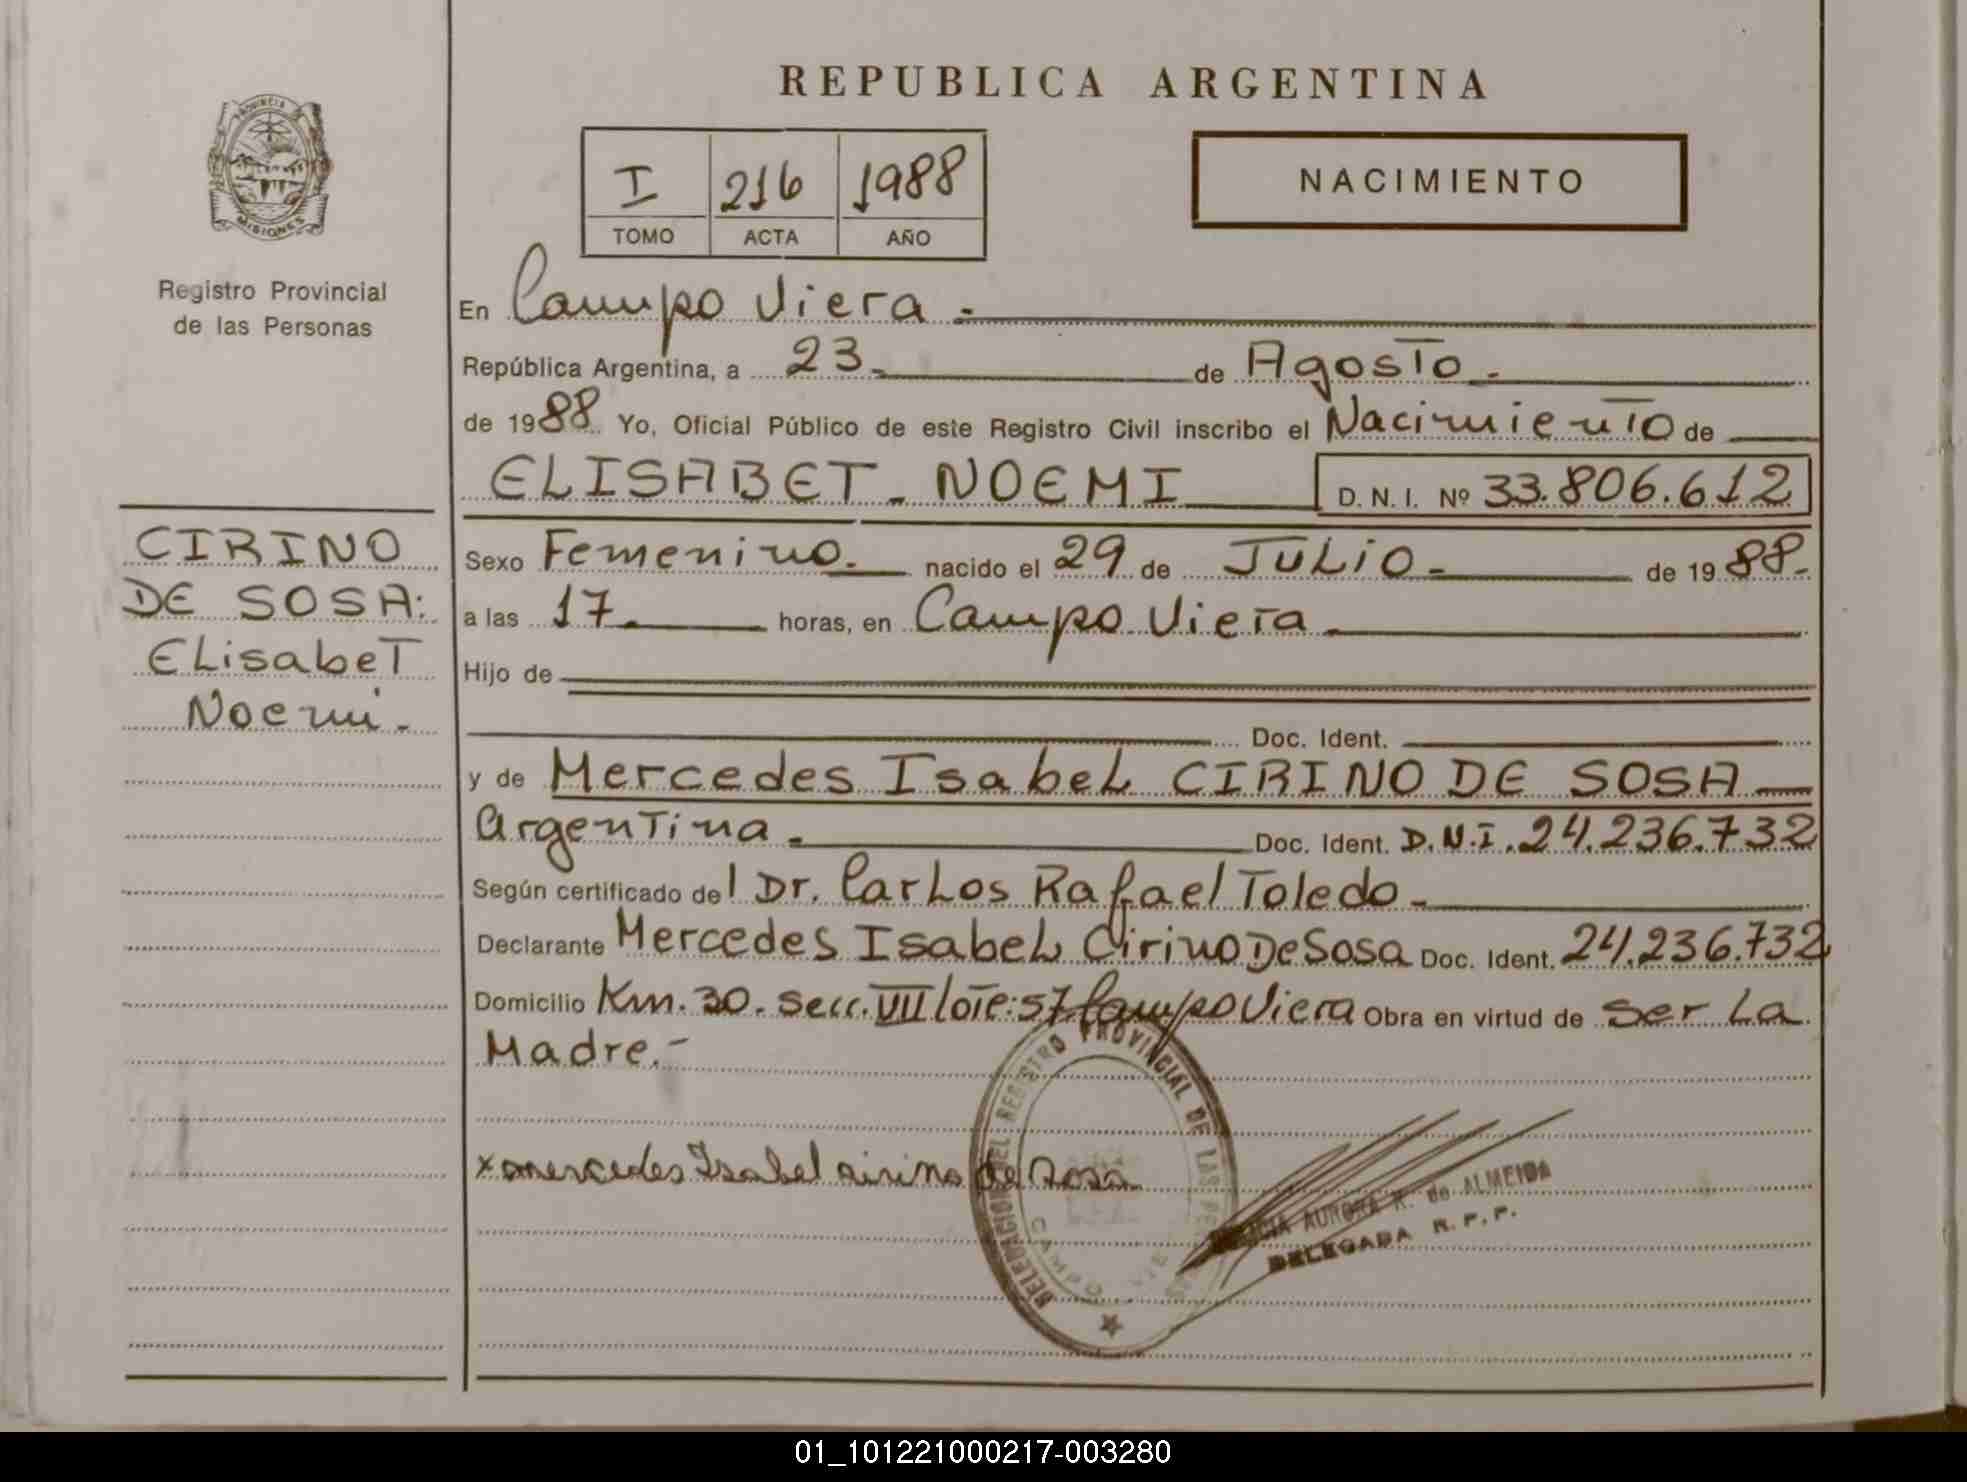 REPUBLICA ARGENTINA
PROVINCIA
MISIONES
Registro Provincial
de las Personas
I 216 1988
TOMO ACTA AÑO
NACIMIENTO
En Campo Viera.
República Argentina, a 23. de Agosto.
de 1988 Yo, Oficial Público de este Registro Civil inscribo el Nacimiento de
ELISABET NOEMI D. N. I. Nº 33.806.612
CIRINO
DE SOSA:
Elisabet
Noemi.
Sexo Femenino. nacido el 29 de JULIO. de 1988.
a las 17. horas, en Campo Viera
Hijo de
Doc. Ident.
y de Mercedes Isabel CIRINO DE SOSA
Argentina. Doc. Ident. D.N.I. 24.236.732
Según certificado del Dr. Carlos Rafael Toledo.
Declarante Mercedes Isabel Cirino De Sosa Doc. Ident. 24.236.732
Domicilio Km. 30. Secc. VII lote: 57 Campo Viera Obra en virtud de ser La
Madre.-
x mercedes Isabel cirino de Sosa
DELEGACION DEL REGISTRO PROVINCIAL DE LAS
CAMPO
AURORA R. de ALMEIDA
DELEGADA R. P. P.
01_101221000217-003280